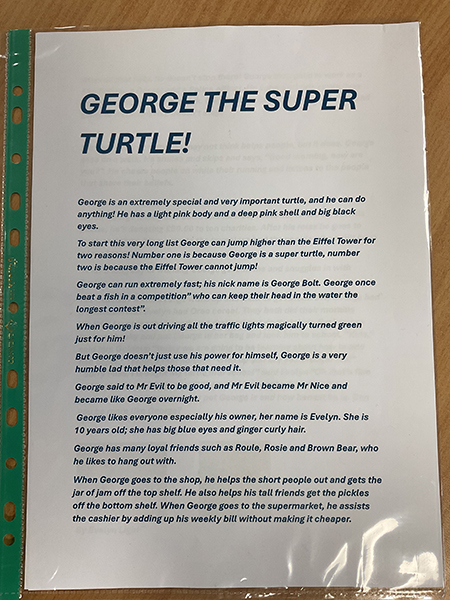 GEORGE THE SUPER
TURTLE!
George is an extremely special and very important turtle, and he can do
anything! He has a light pink body and a deep pink shell and big black
eyes.
To start this very long list George can jump higher than the Eiffel Tower for
two reasons! Number one is because George is a super turtle, number
two is because the Eiffel Tower cannot jump!
George can run extremely fast; his nick name is George Bolt. George once
beat a fish in a competition" who can keep their head in the water the
longest contest".
When George is out driving all the traffic lights magically turned green
just for him!
But George doesn't just use his power for himself, George is a very
humble lad that helps those that need it.
George said to Mr Evil to be good, and Mr Evil became Mr Nice and
became like George overnight.
George likes everyone especially his owner, her name is Evelyn. She is
10 years old; she has big blue eyes and ginger curly hair.
George has many loyal friends such as Roule, Rosie and Brown Bear, who
he likes to hang out with.
When George goes to the shop, he helps the short people out and gets the
jar of jam off the top shelf. He also helps his tall friends get the pickles
off the bottom shelf. When George goes to the supermarket, he assists
the cashier by adding up his weekly bill without making it cheaper.